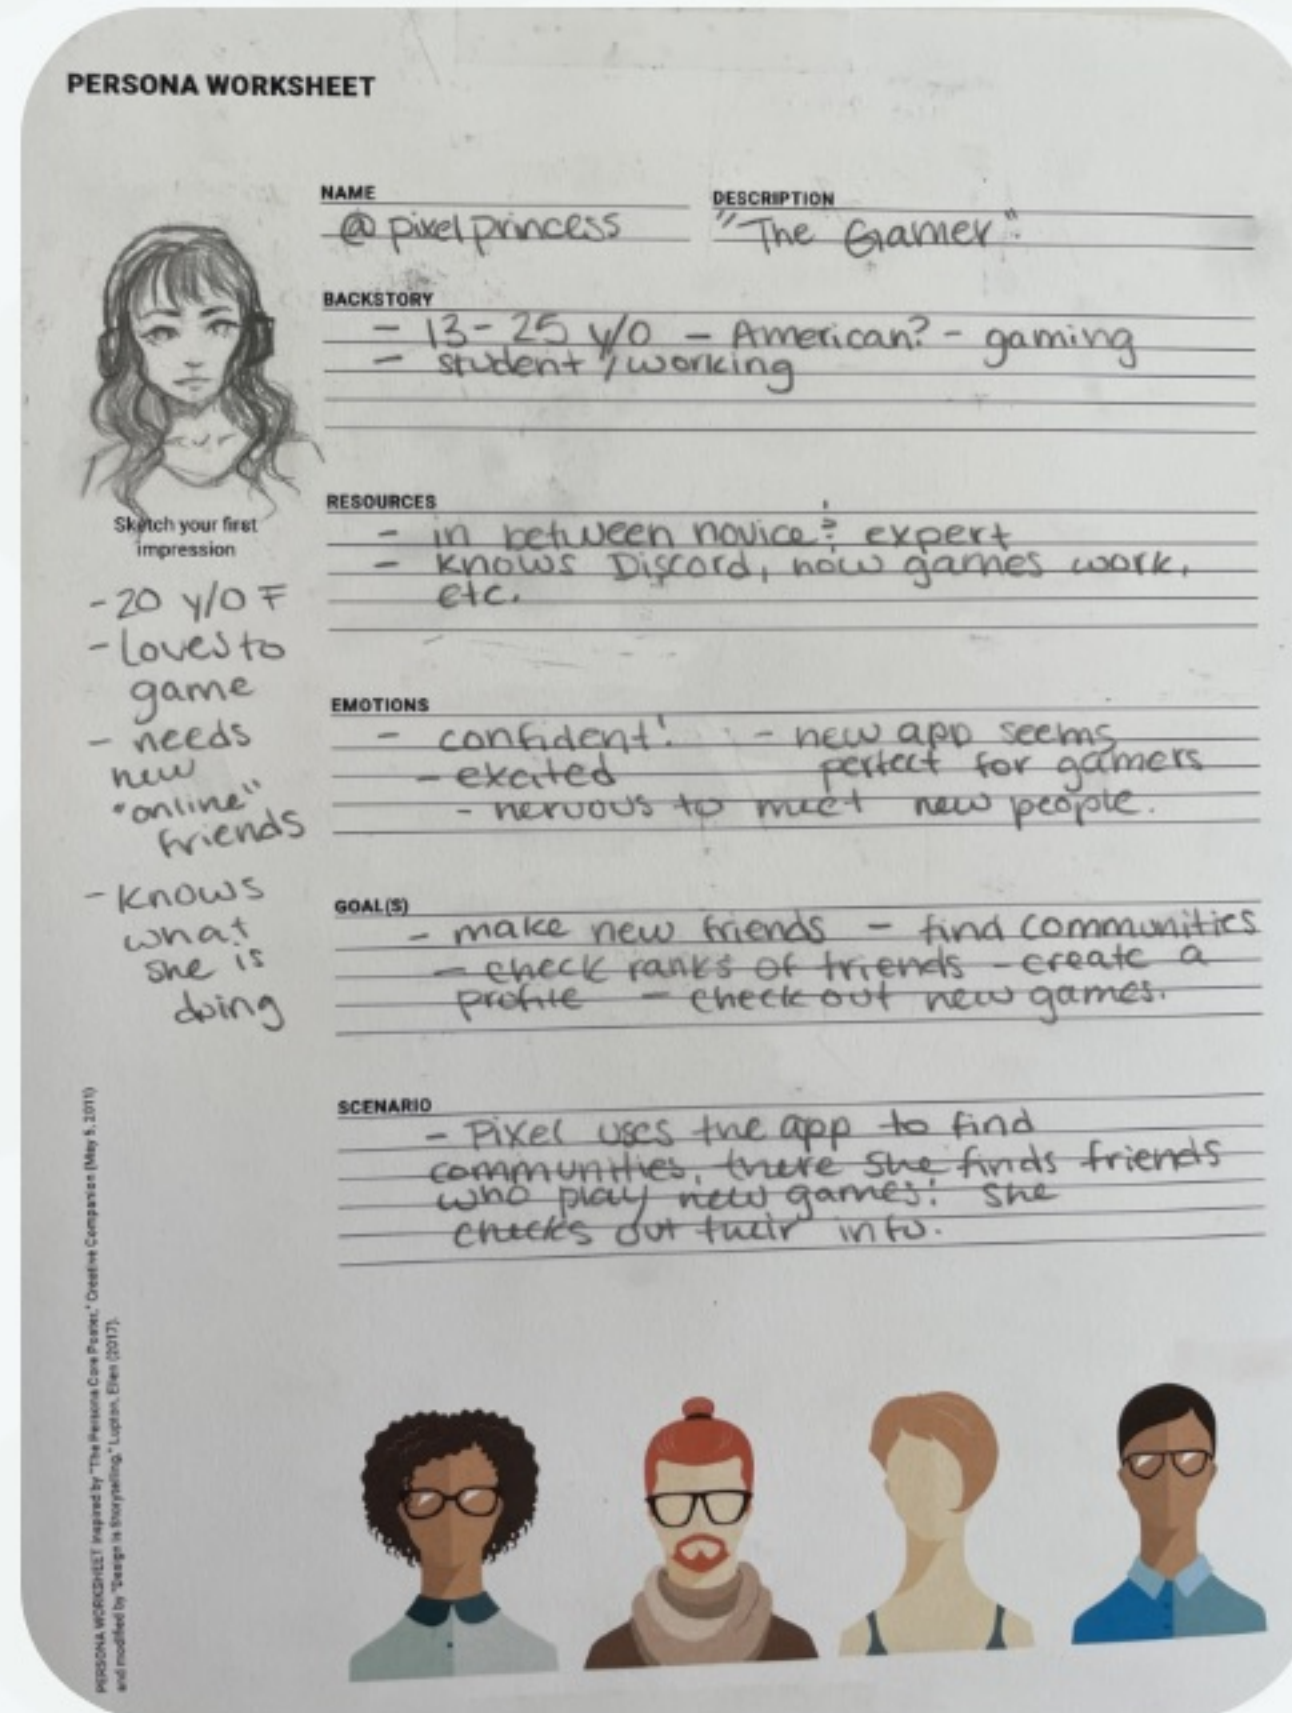 PERSONA WORKSHEET
NAME
@pixelprincess
DESCRIPTION
"The Gamer"
BACKSTORY
- 13-25 y/o - American? - gaming
- student / working
Sketch your first
impression
- 20 y/o F
- Loves to
game
- needs
new
"online"
friends
- knows
what
she is
doing
RESOURCES
- in between novice & expert
- knows Discord, how games work,
etc.
EMOTIONS
- confident! - new app seems
- excited perfect for gamers
- nervous to meet new people.
GOAL(S)
- make new friends - find communities
- check ranks of friends - create a
profile - check out new games.
SCENARIO
- Pixel uses the app to find
communities, there she finds friends
who play new games! She
checks out their info.
PERSONA WORKSHEET inspired by "The Persona Core Poster," Creative Companion (May 5, 2011)
and modified by "Design is Storytelling," Lupton, Ellen (2017).